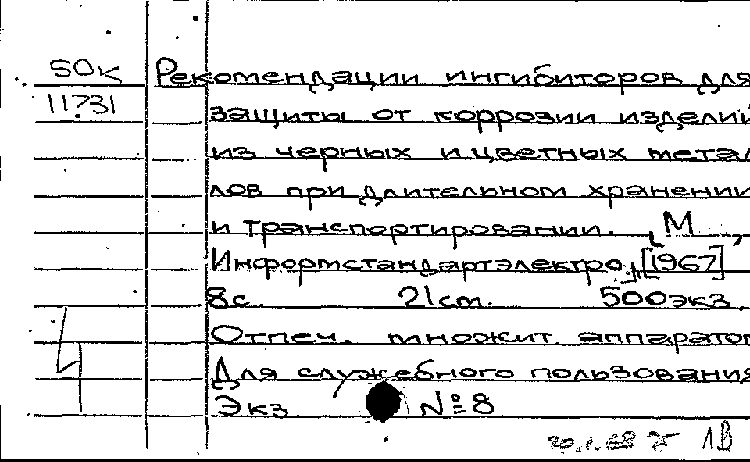 50к Рекомендации ингибиторов для
11731 защиты от коррозии изделий
из черных и цветных метал
лов при длительном хранении
и транспортировании. М.,
Информстандартэлектро, [1967]
8с. 21см. 500экз.
Отпеч. множит. аппаратом
Для служебного пользования
Экз №8
ЛВ